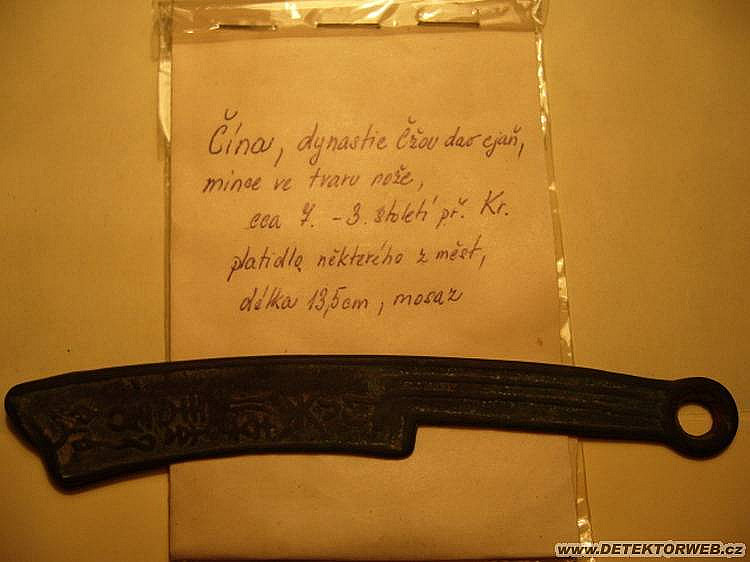 Čína, dynastie Čžou dao cjaň,
mince ve tvaru nože,
cca 7. - 3. století př. Kr.
platidlo některého z měst,
délka 13,5cm, mosaz
www.DETEKTORWEB.cz